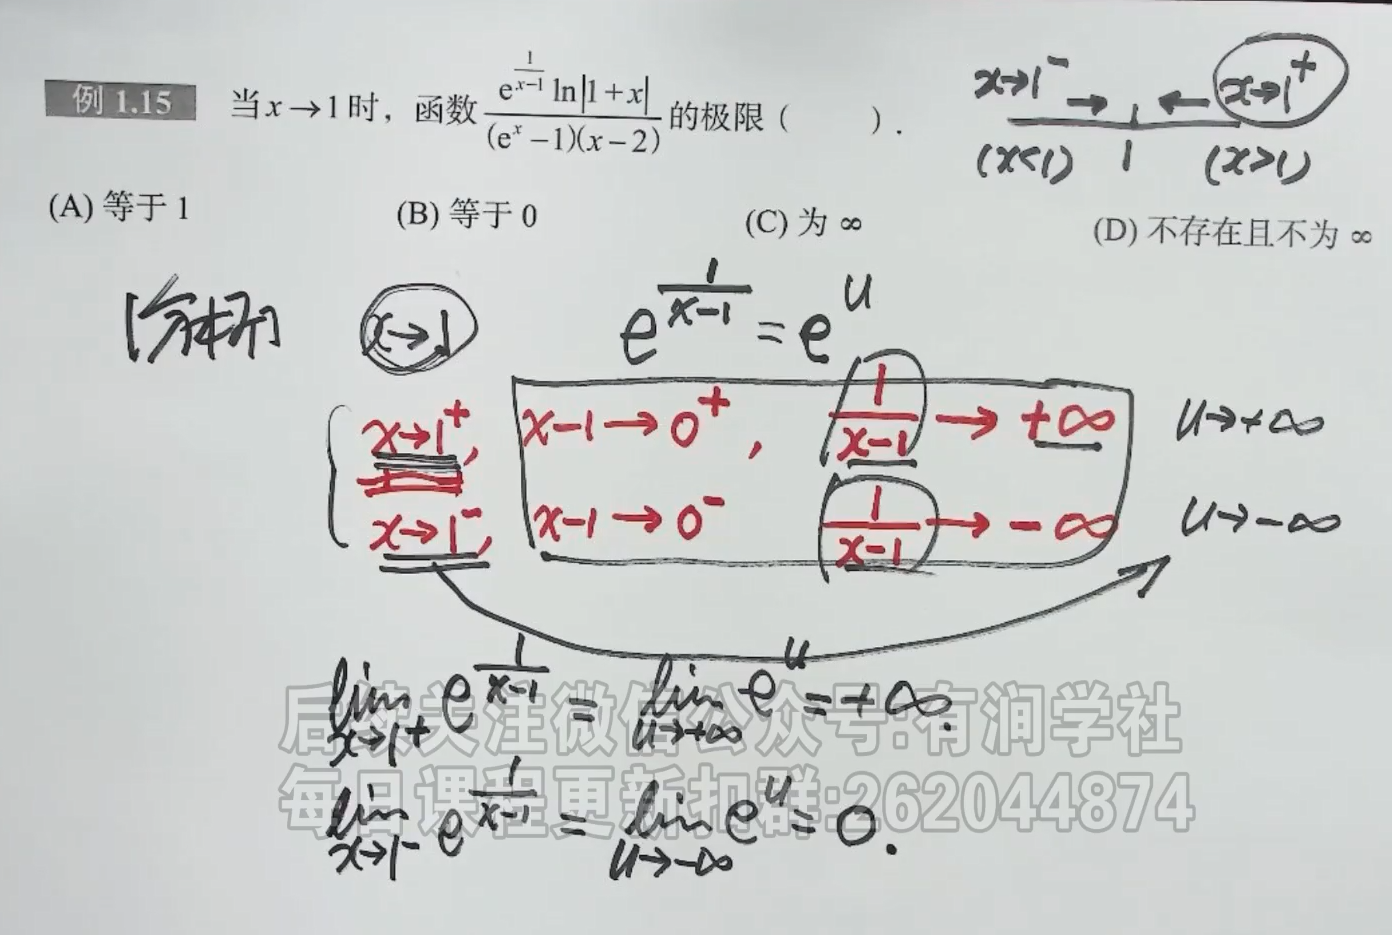 例 1.15 当 x→1 时，函数 \frac{e^{\frac{1}{x-1}} ln|1+x|}{(e^x-1)(x-2)} 的极限（    ）.
x→1⁻ → 1 ← x→1⁺
(x<1) 1 (x>1)
(A) 等于 1 (B) 等于 0 (C) 为 ∞ (D) 不存在且不为 ∞
x→1 e^{\frac{1}{x-1}} = e^u
x→1⁺, x-1→0⁺, \frac{1}{x-1} → +∞ u→+∞
x→1⁻, x-1→0⁻ \frac{1}{x-1} → -∞ u→-∞
lim_{x→1⁺} e^{\frac{1}{x-1}} = lim_{u→+∞} e^u = +∞.
后续关注微信公众号:有润学社
lim_{x→1⁻} e^{\frac{1}{x-1}} = lim_{u→-∞} e^u = 0.
每日课程更新扣群:262044874